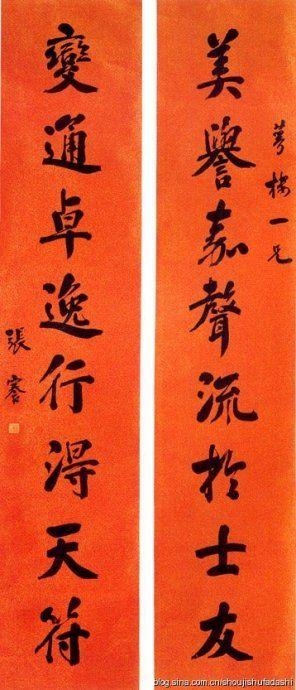 樓一兄
美譽嘉聲流於士友
變通卓逸行得天符
張謇
blog.sina.com.cn/shoujishufadashi